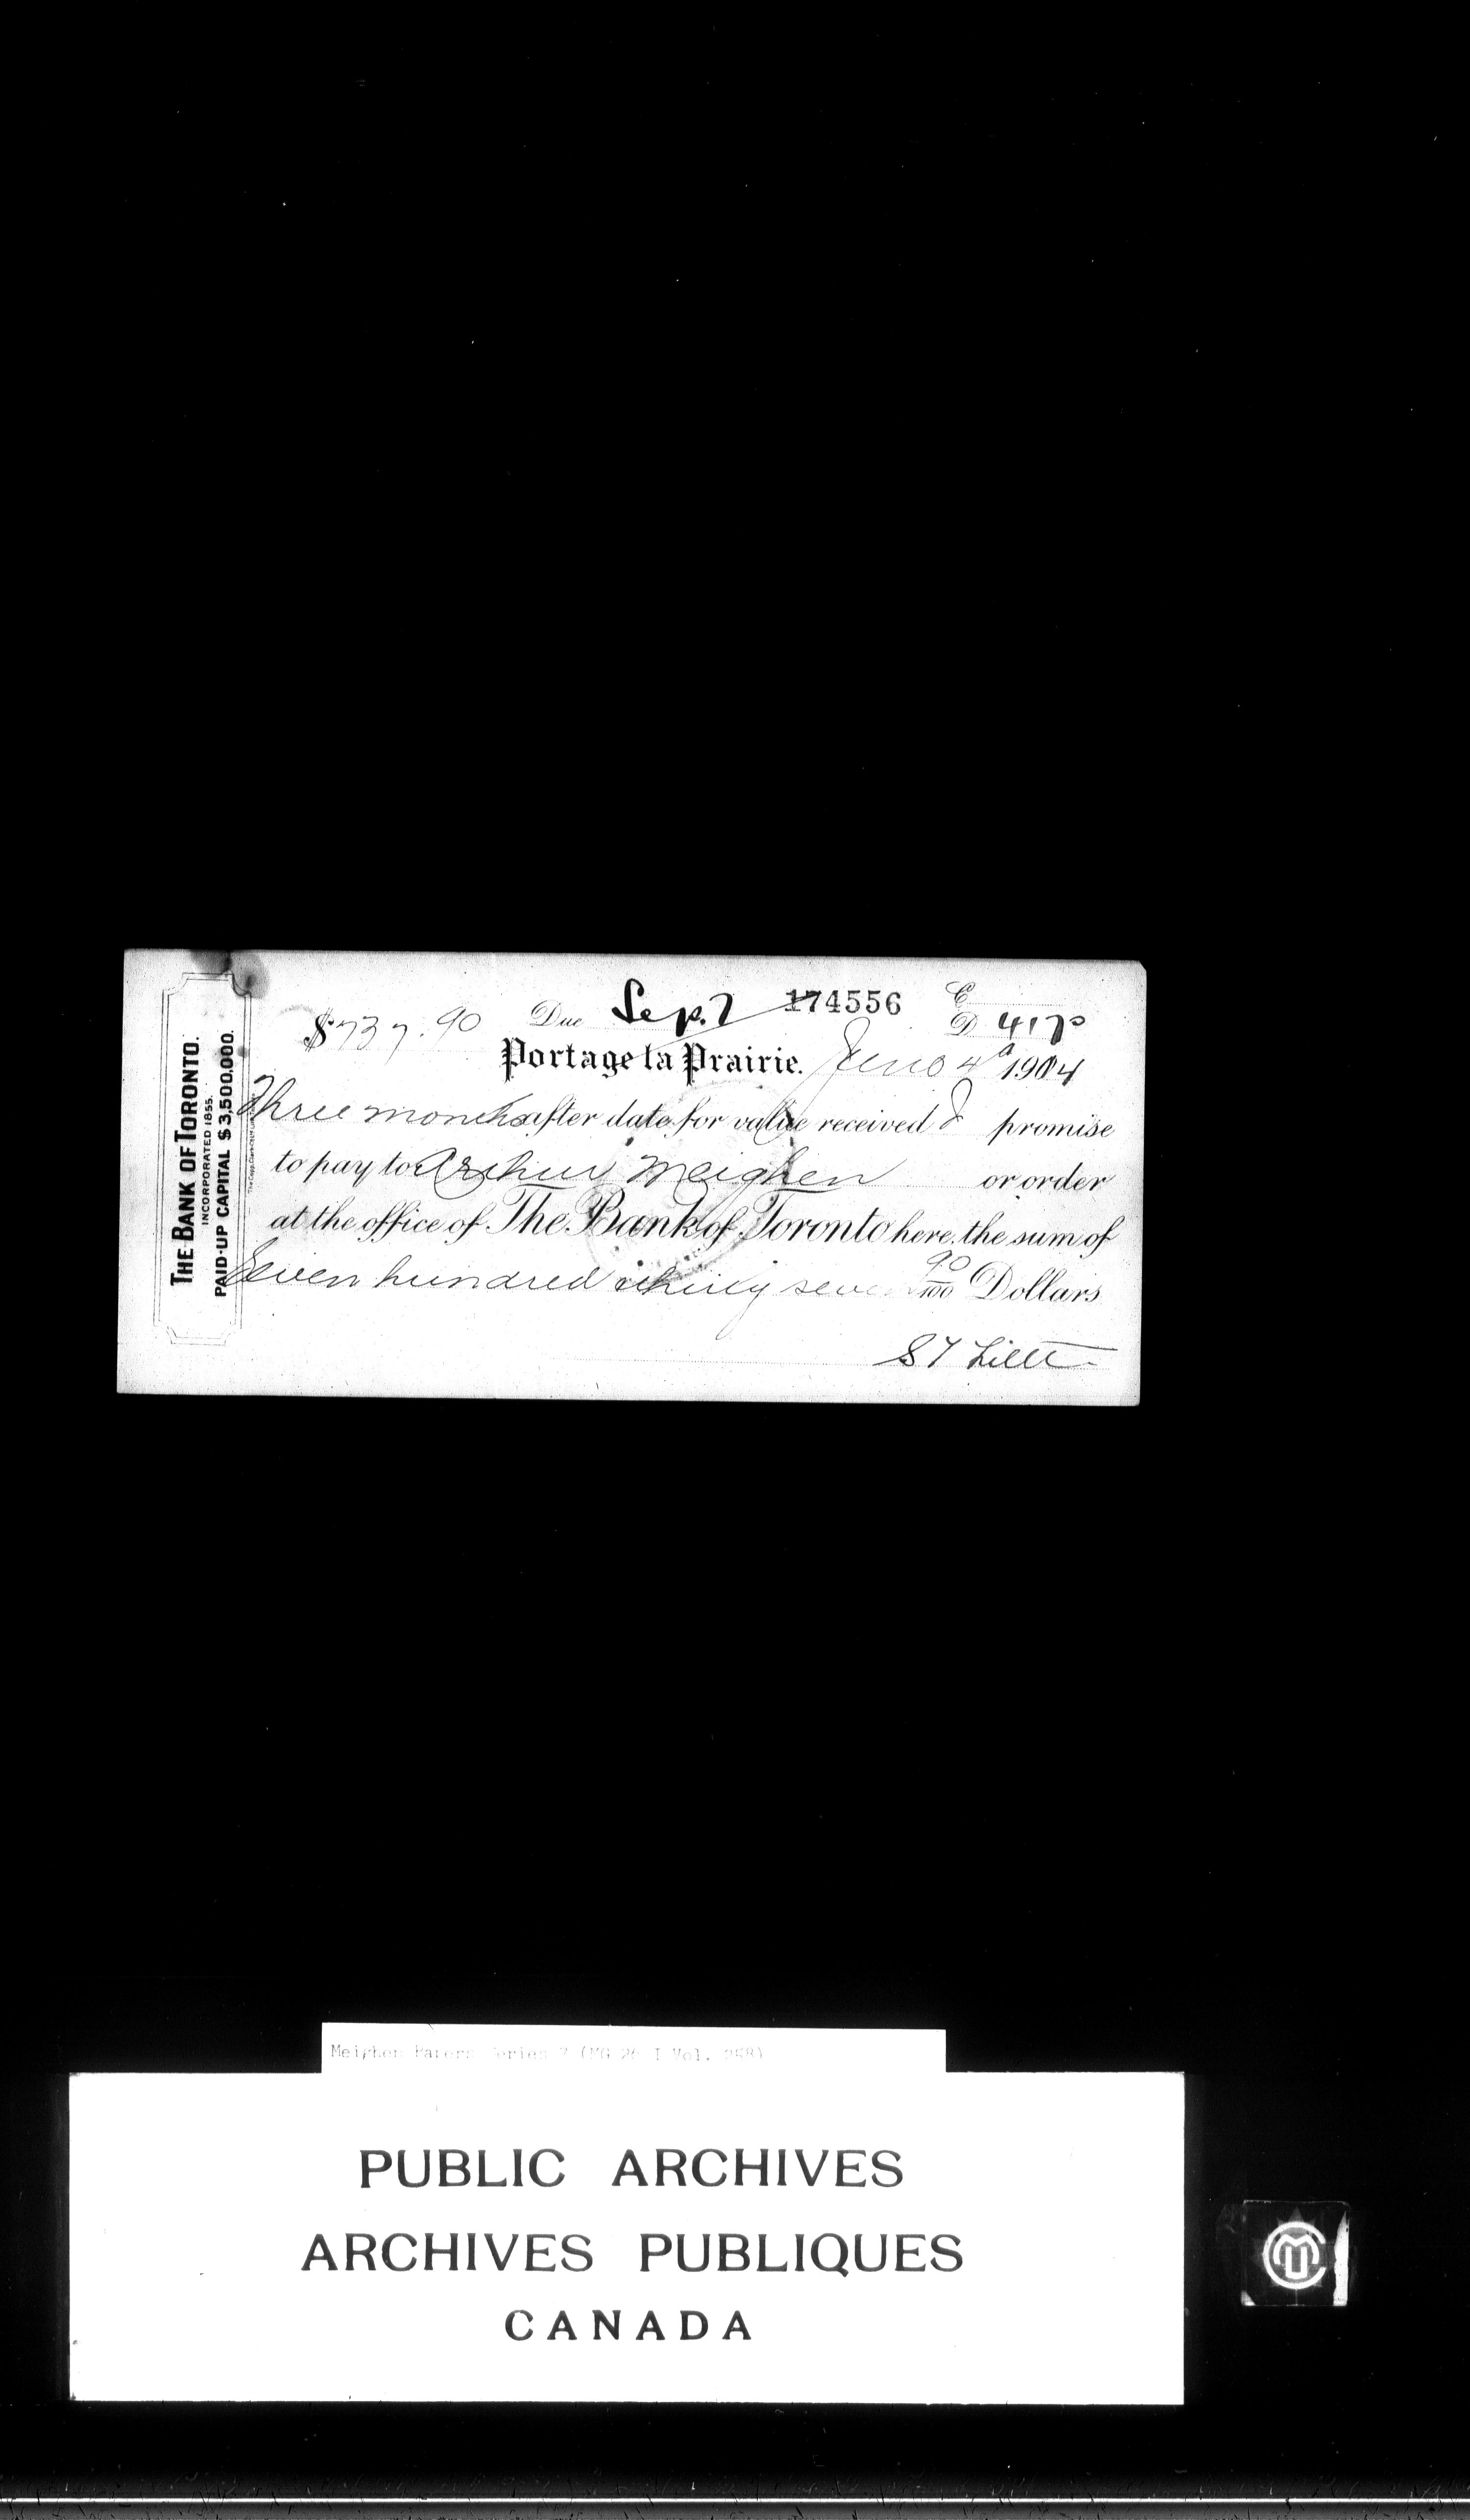 THE BANK OF TORONTO.
INCORPORATED 1855.
PAID-UP CAPITAL $3,500,000.
$737.90 Due Sep. 7 174556 E
D 4170
Portage la Prairie. June 4 1904
Three months after date for value received I promise
to pay to Arthur Meighen or order
at the office of The Bank of Toronto here, the sum of
Seven hundred thirty seven 90/100 Dollars
S T
Meighen Papers Series 7 (MG 26 I Vol. 258)
PUBLIC ARCHIVES
ARCHIVES PUBLIQUES
CANADA